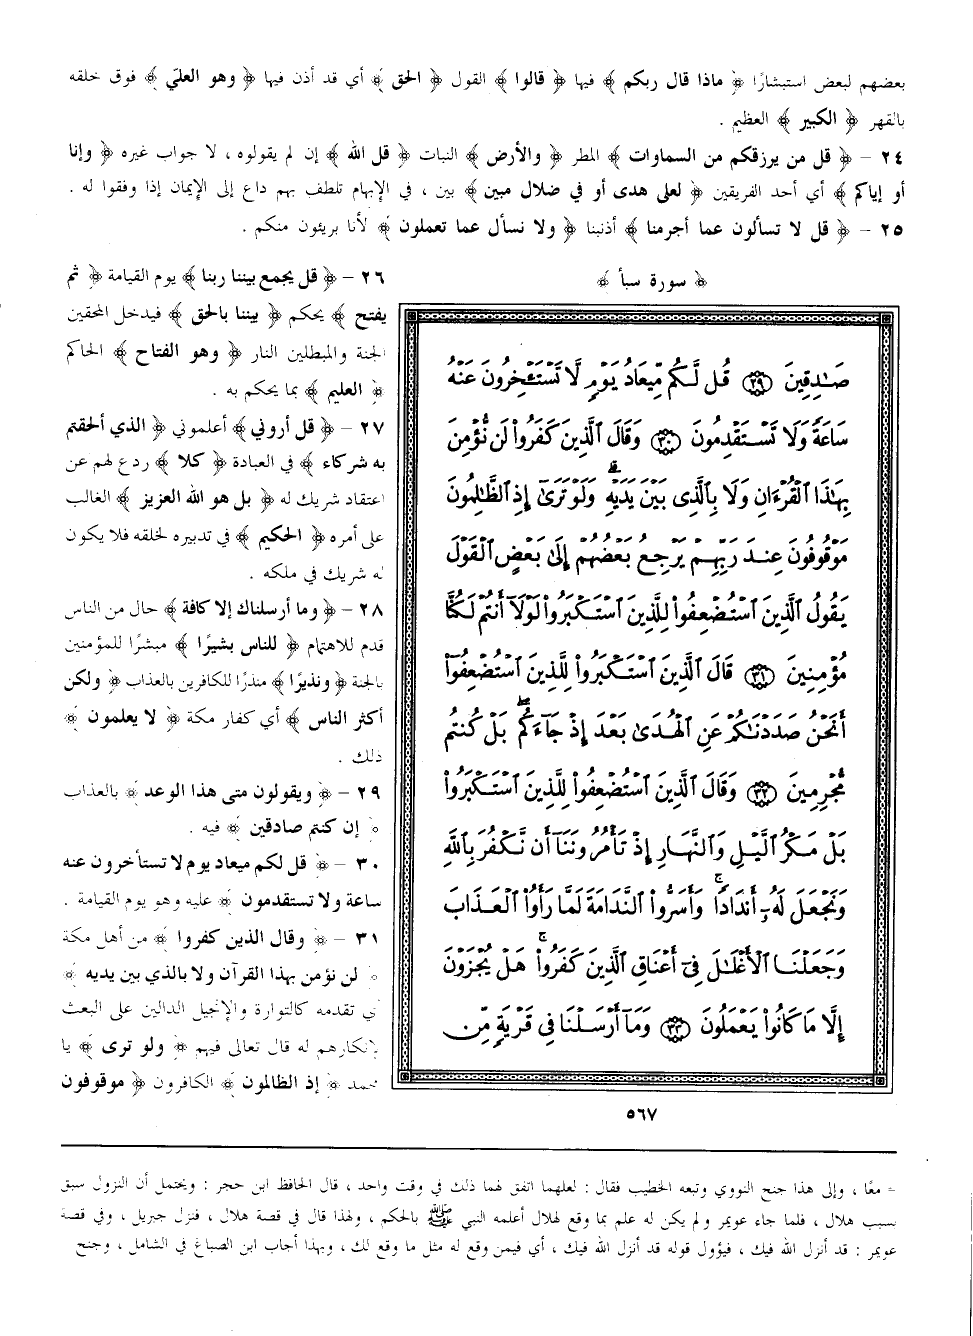 بعضهم لبعض استبشارًا ﴿ ماذا قال ربكم ﴾ فيها ﴿ قالوا ﴾ القول ﴿ الحق ﴾ أي قد أذن فيها ﴿ وهو العليّ ﴾ فوق خلقه
بالقهر ﴿ الكبير ﴾ العظيم .
٢٤ – ﴿ قل من يرزقكم من السماوات ﴾ المطر ﴿ والأرض ﴾ النبات ﴿ قل الله ﴾ إن لم يقولوه ، لا جواب غيره ﴿ وإنا
أو إياكم ﴾ أي أحد الفريقين ﴿ لعلى هدى أو في ضلال مبين ﴾ بين ، في الإبهام تلطف بهم داع إلى الإيمان إذا وفقوا له .
٢٥ – ﴿ قل لا تسألون عما أجرمنا ﴾ أذنبنا ﴿ ولا نسأل عما تعملون ﴾ لأنا بريئون منكم .
﴿ سورة سبأ ﴾
صَٰدِقِينَ ٢٩ قُل لَّكُم مِّيعَادُ يَوْمٍ لَّا تَسْتَـْٔخِرُونَ عَنْهُ
سَاعَةً وَلَا تَسْتَقْدِمُونَ ٣٠ وَقَالَ ٱلَّذِينَ كَفَرُوا۟ لَن نُّؤْمِنَ
بِهَٰذَا ٱلْقُرْءَانِ وَلَا بِٱلَّذِى بَيْنَ يَدَيْهِ ۗ وَلَوْ تَرَىٰٓ إِذِ ٱلظَّٰلِمُونَ
مَوْقُوفُونَ عِندَ رَبِّهِمْ يَرْجِعُ بَعْضُهُمْ إِلَىٰ بَعْضٍ ٱلْقَوْلَ
يَقُولُ ٱلَّذِينَ ٱسْتُضْعِفُوا۟ لِلَّذِينَ ٱسْتَكْبَرُوا۟ لَوْلَآ أَنتُمْ لَكُنَّا
مُؤْمِنِينَ ٣١ قَالَ ٱلَّذِينَ ٱسْتَكْبَرُوا۟ لِلَّذِينَ ٱسْتُضْعِفُوٓا۟
أَنَحْنُ صَدَدْنَٰكُمْ عَنِ ٱلْهُدَىٰ بَعْدَ إِذْ جَآءَكُم ۖ بَلْ كُنتُم
مُّجْرِمِينَ ٣٢ وَقَالَ ٱلَّذِينَ ٱسْتُضْعِفُوا۟ لِلَّذِينَ ٱسْتَكْبَرُوا۟
بَلْ مَكْرُ ٱلَّيْلِ وَٱلنَّهَارِ إِذْ تَأْمُرُونَنَآ أَن نَّكْفُرَ بِٱللَّهِ
وَنَجْعَلَ لَهُۥٓ أَندَادًا ۚ وَأَسَرُّوا۟ ٱلنَّدَامَةَ لَمَّا رَأَوُا۟ ٱلْعَذَابَ
وَجَعَلْنَا ٱلْأَغْلَٰلَ فِىٓ أَعْنَاقِ ٱلَّذِينَ كَفَرُوا۟ ۚ هَلْ يُجْزَوْنَ
إِلَّا مَا كَانُوا۟ يَعْمَلُونَ ٣٣ وَمَآ أَرْسَلْنَا فِى قَرْيَةٍ مِّن
٥٦٧
٢٦ – ﴿ قل يجمع بيننا ربنا ﴾ يوم القيامة ﴿ ثم
يفتح ﴾ يحكم ﴿ بيننا بالحق ﴾ فيدخل المحقين
الجنة والمبطلين النار ﴿ وهو الفتاح ﴾ الحاكم
﴿ العليم ﴾ بما يحكم به .
٢٧ – ﴿ قل أروني ﴾ أعلموني ﴿ الذي ألحقتم
به شركاء ﴾ في العبادة ﴿ كلا ﴾ ردع لهم عن
اعتقاد شريك له ﴿ بل هو الله العزيز ﴾ الغالب
على أمره ﴿ الحكيم ﴾ في تدبيره لخلقه فلا يكون
له شريك في ملكه .
٢٨ – ﴿ وما أرسلناك إلا كافة ﴾ حال من الناس
قدم للاهتمام ﴿ للناس بشيرًا ﴾ مبشرًا للمؤمنين
بالجنة ﴿ ونذيرًا ﴾ منذرًا للكافرين بالعذاب ﴿ ولكن
أكثر الناس ﴾ أي كفار مكة ﴿ لا يعلمون ﴾
ذلك .
٢٩ – ﴿ ويقولون متى هذا الوعد ﴾ بالعذاب
﴿ إن كنتم صادقين ﴾ فيه .
٣٠ – ﴿ قل لكم ميعاد يوم لا تستأخرون عنه
ساعة ولا تستقدمون ﴾ عليه وهو يوم القيامة .
٣١ – ﴿ وقال الذين كفروا ﴾ من أهل مكة
﴿ لن نؤمن بهذا القرآن ولا بالذي بين يديه ﴾
أي تقدمه كالتوارة والإنجيل الدالين على البعث
لإنكارهم له قال تعالى فيهم ﴿ ولو ترى ﴾ يا
محمد ﴿ إذ الظالمون ﴾ الكافرون ﴿ موقوفون
= معًا ، وإلى هذا جنح النووي وتبعه الخطيب فقال : لعلهما اتفق لهما ذلك في وقت واحد ، قال الحافظ ابن حجر : ويحتمل أن النزول سبق
بسبب هلال ، فلما جاء عويمر ولم يكن له علم بما وقع لهلال أعلمه النبي ﷺ بالحكم ، ولهذا قال في قصة هلال ، فنزل جبريل ، وفي قصة
عويمر : قد أنزل الله فيك ، فيؤول قوله قد أنزل الله فيك ، أي فيمن وقع له مثل ما وقع لك ، وبهذا أجاب ابن الصباغ في الشامل ، وجنح